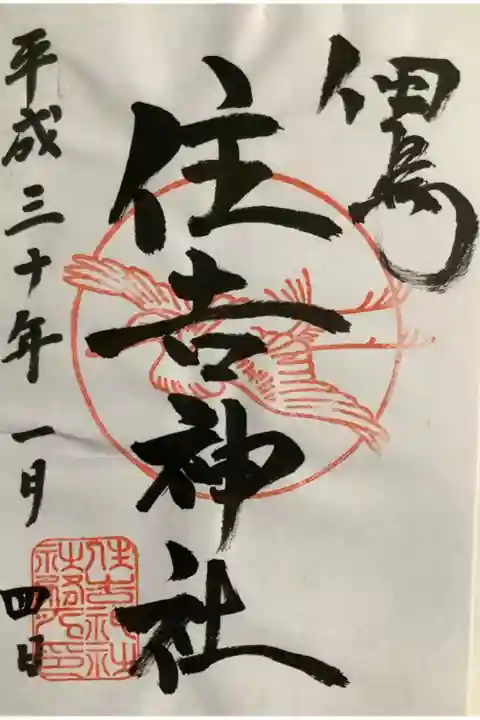 佃島
住吉神社
平成三十年 一月 四日
住吉神社
社務所印